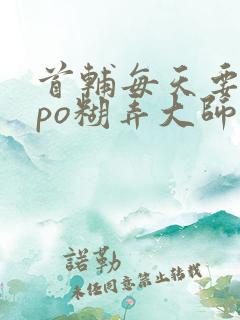 首輔每天要
po糊弄大師
諾勒
未任同意禁止转载